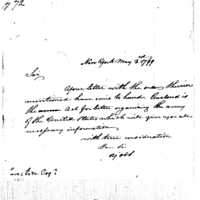 New York May 2nd 1799
Sir
Your letter with the one therein
mentioned have come to hand. Enclosed is
the Act for better organizing the army
of the United States which will give you all
necessary information
with true consideration
I am Sir
Esqr